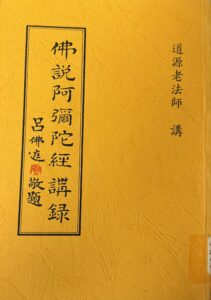 道源老法師 講
佛說阿彌陀經講録
呂佛庭 敬題